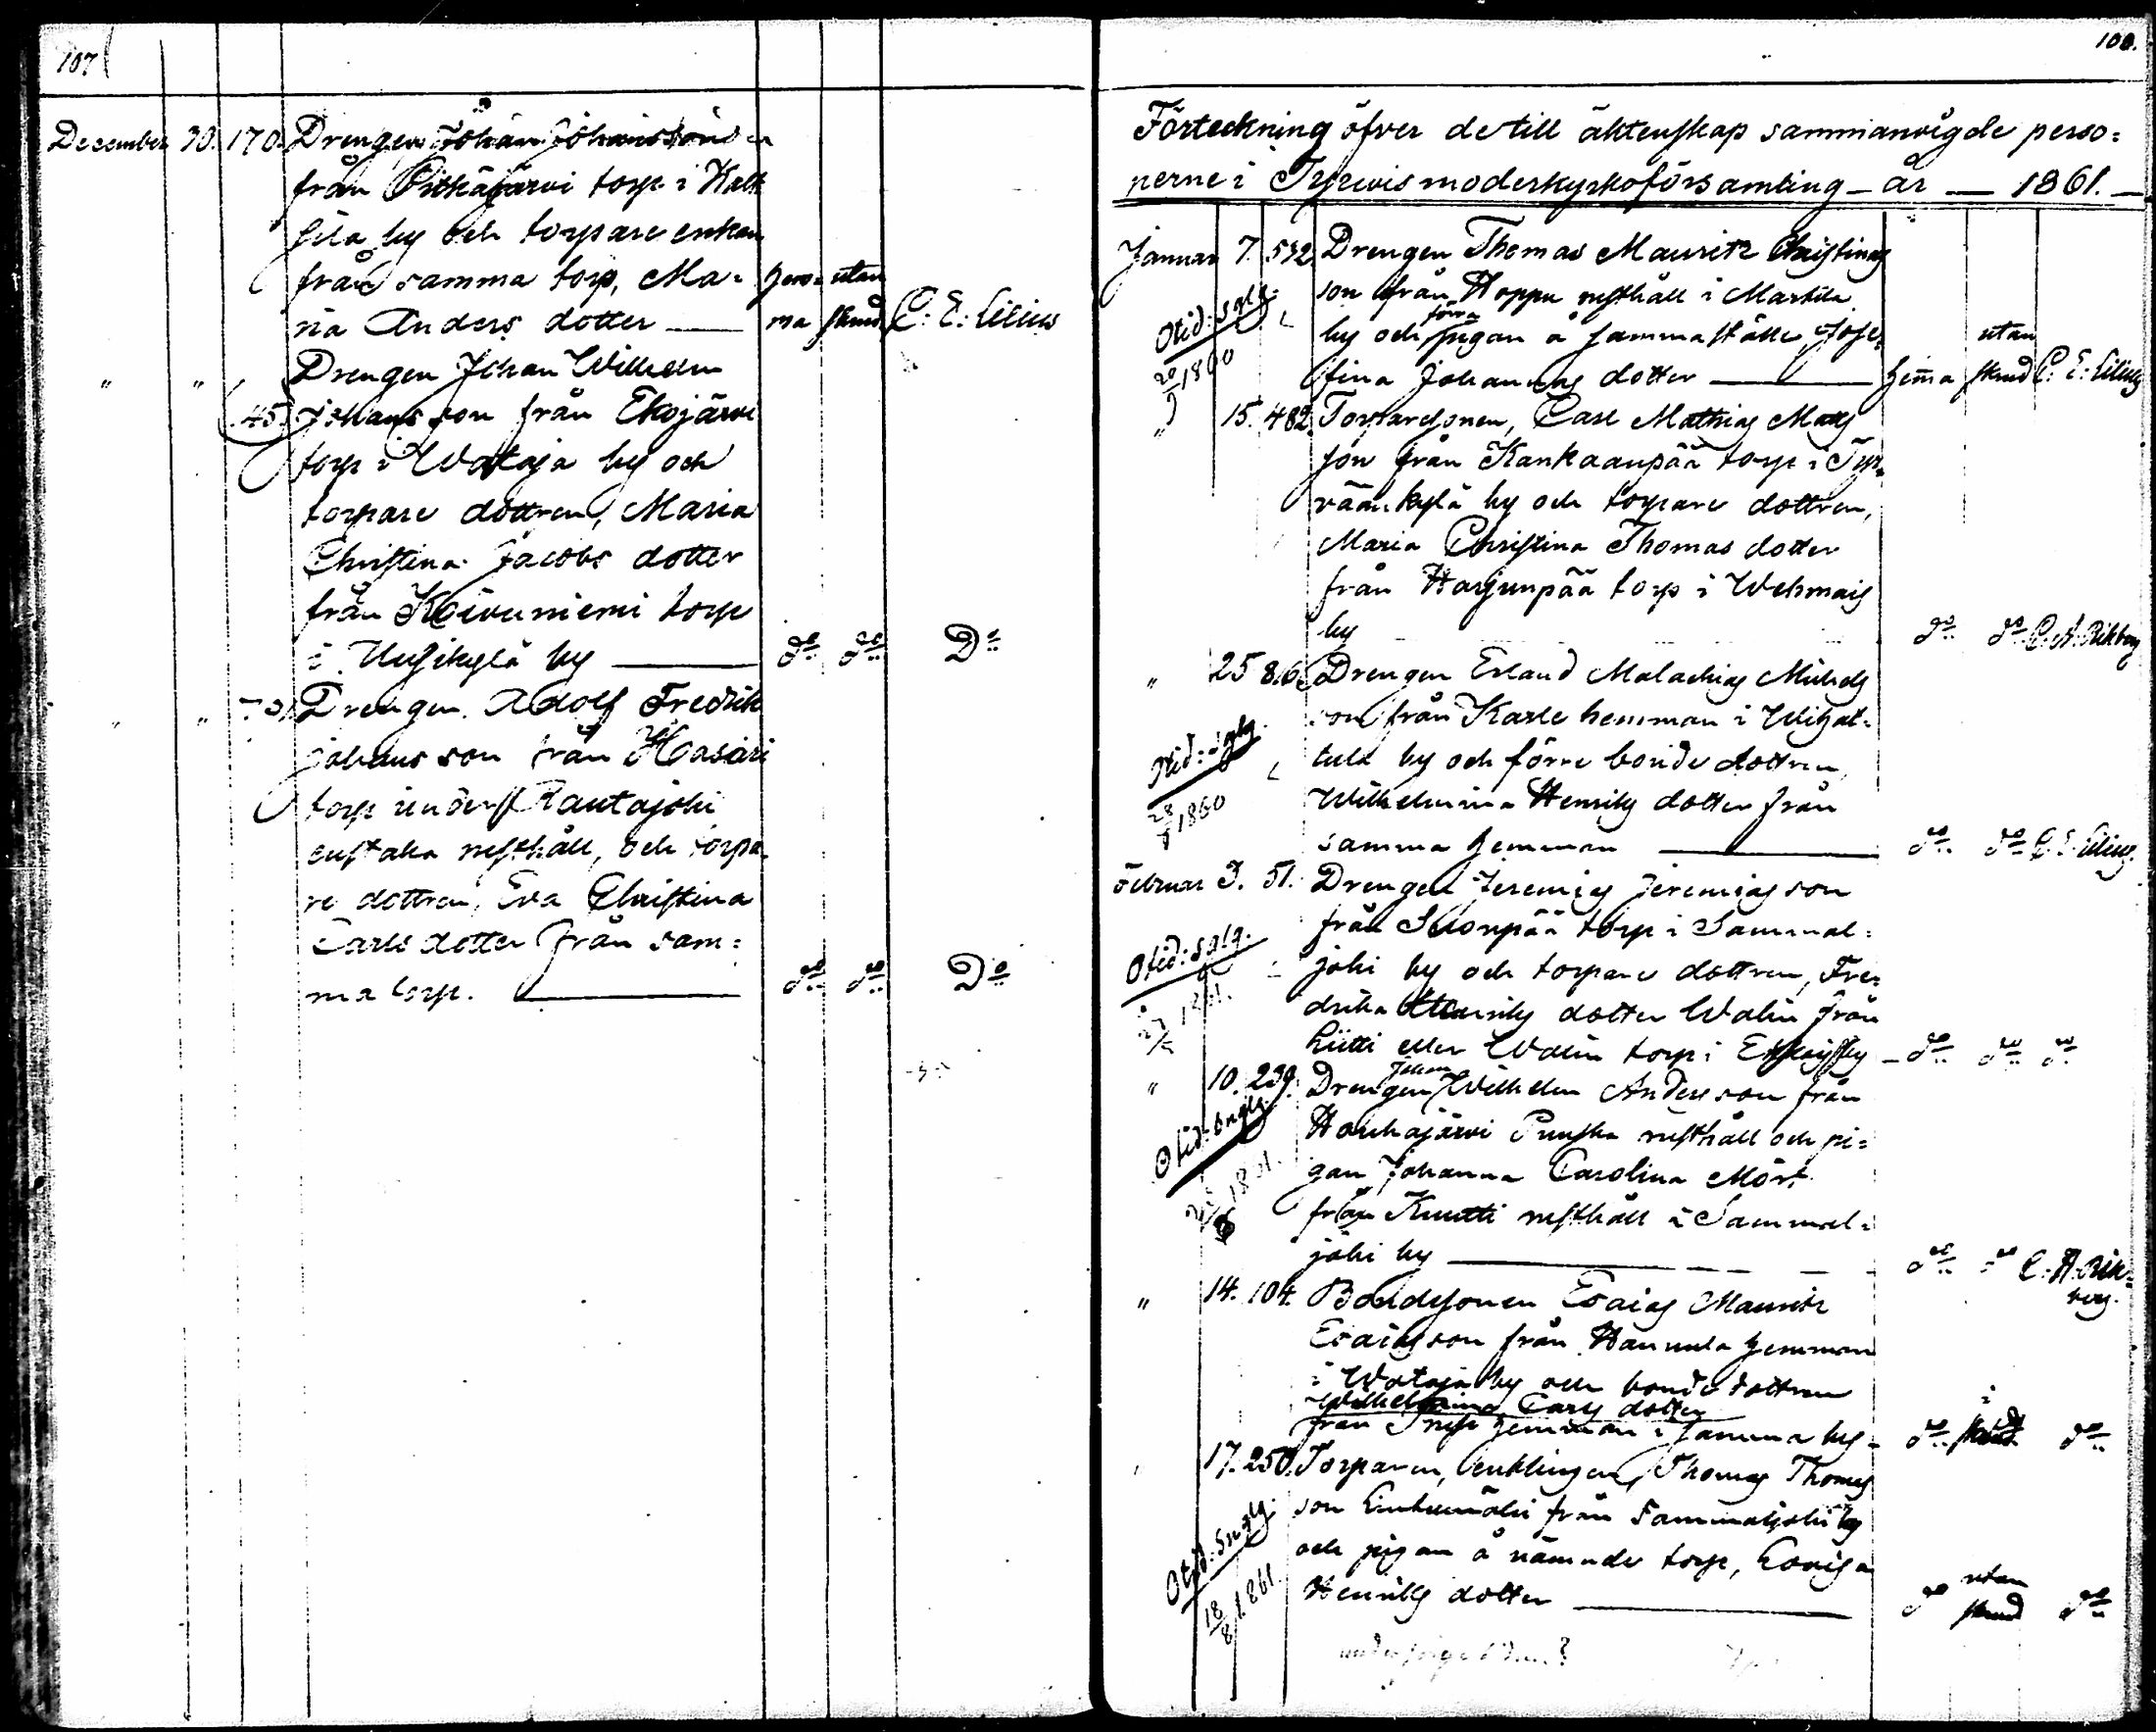 107
December 30. 170. Drengen Johan Johansson
från Pitkäjärvi torp i Kalk
sila by och torpare enkan
från samma torp, Ma=
ria Anders dotter — hem=ma utan skrud C: E: Lilius
" " 45. Drengen Johan Wilhelm
Johans son från Ekojärvi
torp i Wataja by och
torpare dottren, Maria
Christina Jacobs dotter
från Koivuniemi torp
i Uusikylä by — do do Do
" " Drengen Adolf Fredrik
Johans son från Hasari
torp under Rautajoki
enstaka rusthåll, och torpa=
re dottren, Eva Christina
Carls dotter från sam=
ma torp. — do do Do
108.
Förteckning öfver de till äktenskap sammanvigde perso=
nerne i Tyrvis moderkyrkoförsamling — år — 1861. —
Januar 7. 532. Drengen Thomas Mauritz Christians
son från Hoppu rusthåll i Markila
Otid: sglg. by och förra pigan å samma ställe Jose=
20/9 1860 fina Johannes dotter — hemma utan skrud C: E: Lilius
" 15. 482. Torparesonen, Carl Mathias Matts
son från Kankaanpää torp i Tyr=
väänkylä by och torpare dottren,
Maria Christina Thomas dotter
från Harjunpää torp i Wehmais
by do do C. A. Rikberg
" 25 86. Drengen Erland Malachias Michels
son från Karle hemman i Wihat=
Otid: sglg. tula by och förre bonde dottren
28/9 1860 Wilhelmina Henriks dotter från
samma hemman — do do C. E. Lilius
Februar 3. 51. Drengen Jeremias Jeremias son
från Suonpää torp i Sammal=
Otid: sglg. joki by och torpare dottren, Fre=
1861. drika Henriks dotter Walin från
Lütti eller Walin torp i — do do do
" 10. 239. Drengen Johan Wilhelm Anders son från
Otid: Houhajärvi Punska rusthåll och pi=
1861. gan Johanna Carolina Mört
från Knutti rusthåll i Sammal=
joki by — do do C. A. Rik=
berg.
" 14. 104. Bondesonen Esaias Mauritz
Esaias son från Hannula hemman
i Wataja by och bonde dottren
Wilhelmina Carls dotter
från hemman i samma by — do i skrud do
" 17. 250. Torparen, enklingen, Thomas Thomas
son från Sammaljoki by
Otid: Snglg. och pigan å nämnde torp, Lovisa
18/8 1861. Henriks dotter — do utan skrud do